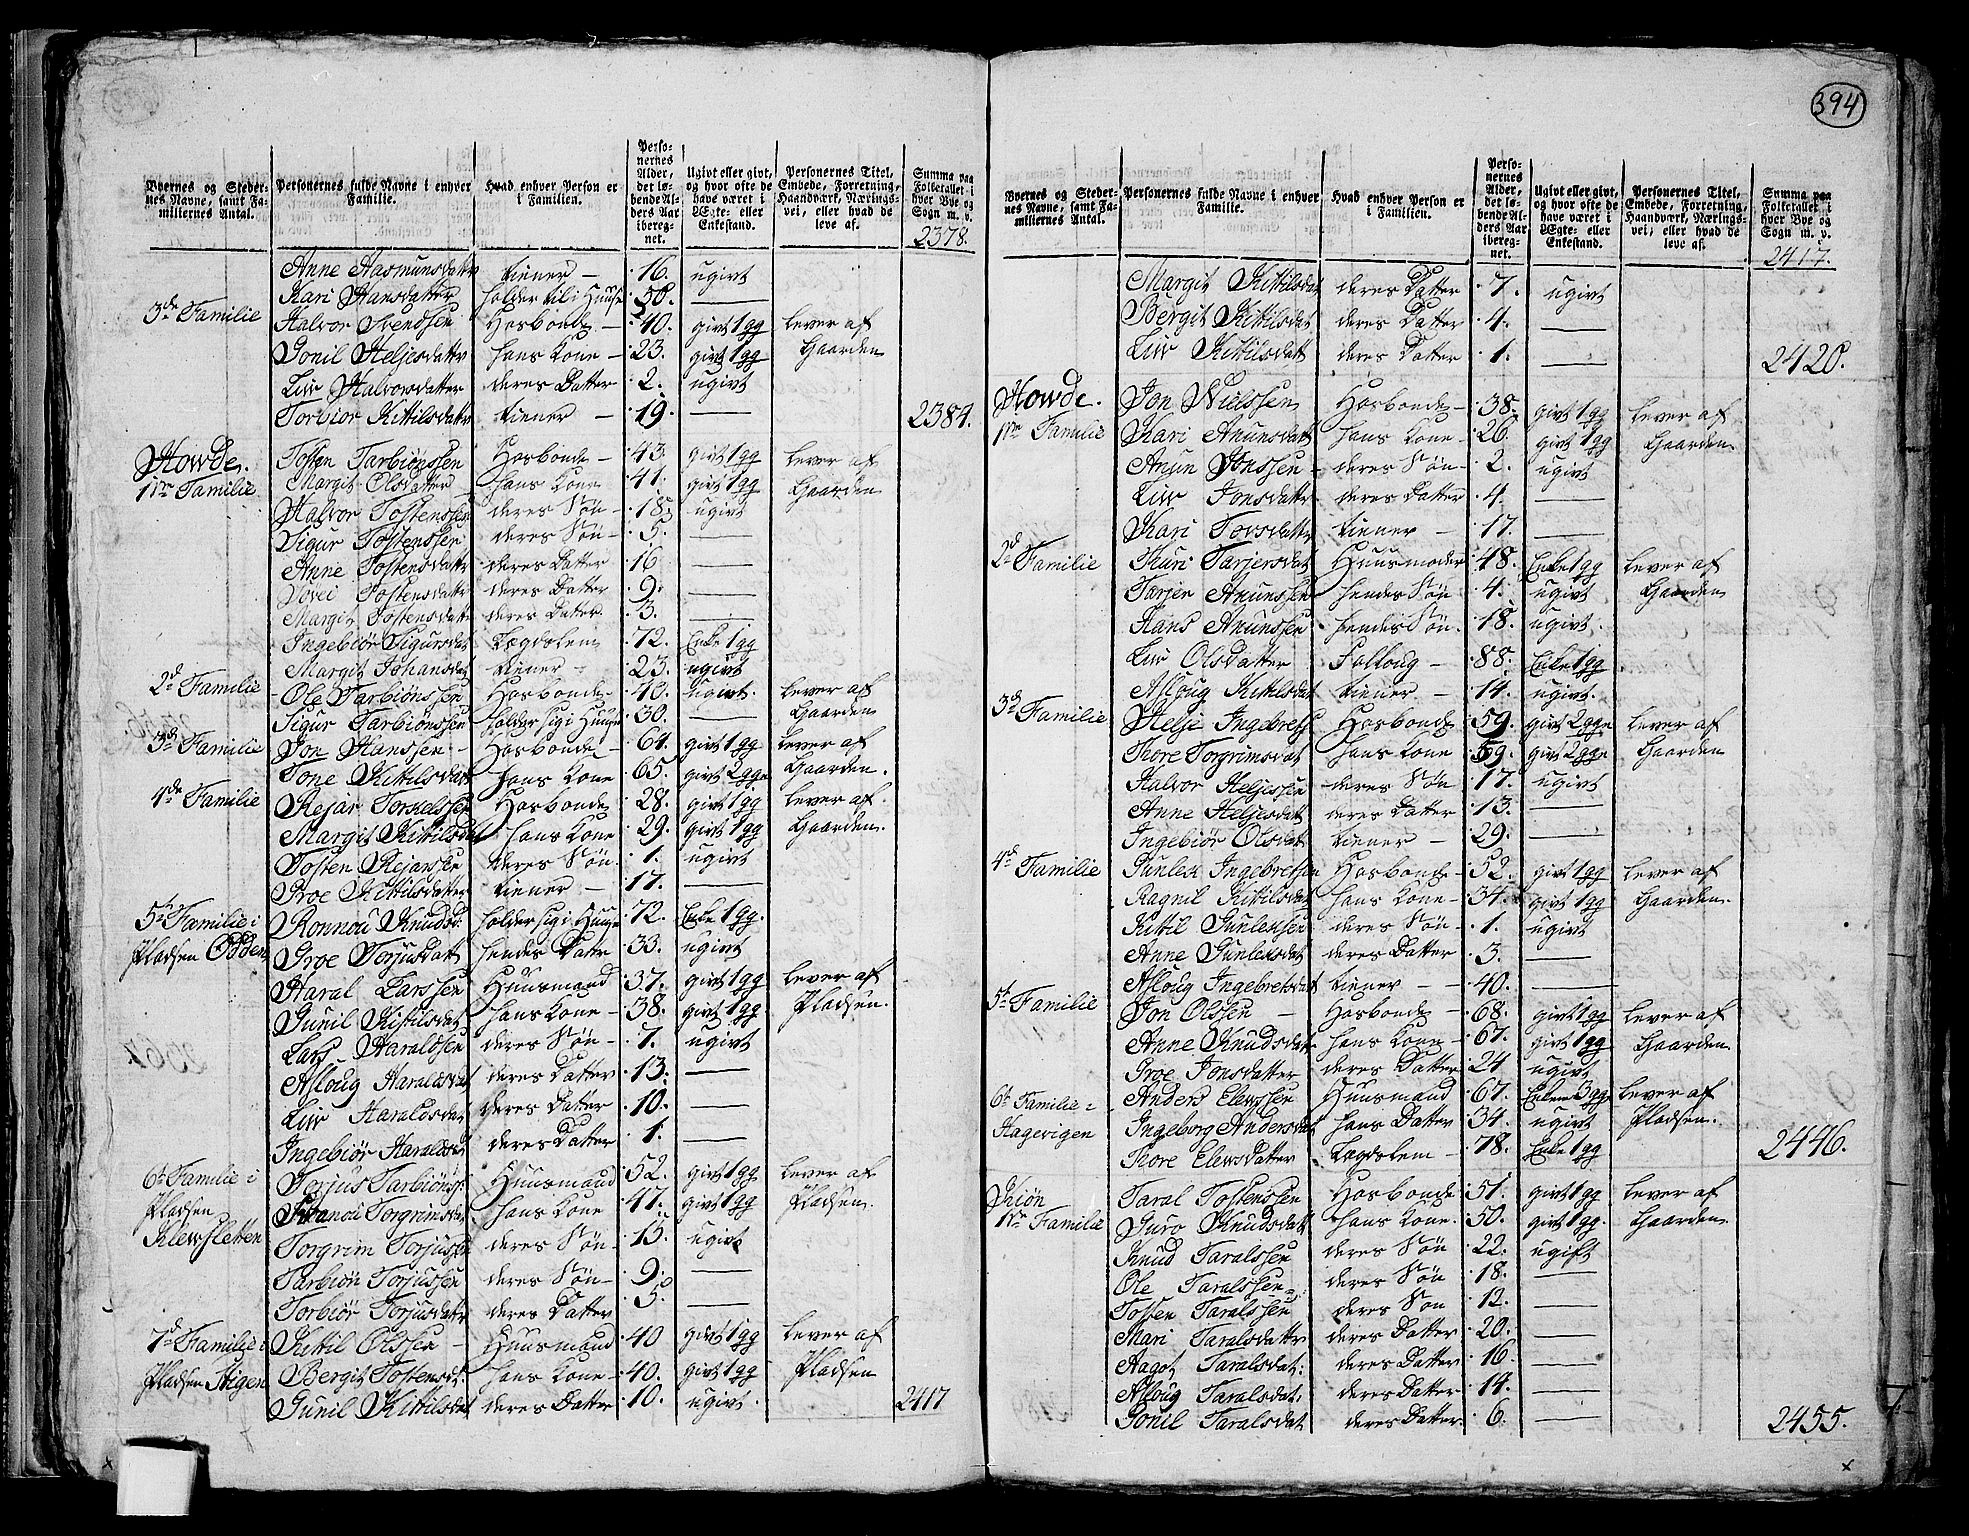 394
Byernes og Stedernes Navne, samt Familiernes Antal. | Personernes fulde Navne i enhver Familie. | Hvad enhver Person er i Familien. | Personernes Alder, det løbende Alders Aar iberegnet. | Ugivt eller givt, og hvor ofte de have været i Ægte- eller Enkestand. | Personernes Titel, Embede, Forretning, Haandværk, Næringsvei, eller hvad de leve af. | Summa paa Folketallet i hver Bye og Sogn m. v.
2378.
Anne Aasmunsdattr tiener - 16. ugivt
Kari Hansdatter holder til i Huuse 50. —
3de Familie Halvor Svendsen Hosbonde - 40. givt 1 gg lever af
Gonil Heljesdattr hans Kone - 23. givt 1 gg Gaarden
Liv Halvorsdatter deres Datter - 2. ugivt
Torbior Kittilsdattr tiener - 19. — 2384.
Howde. Tosten Tarbiønssen Hosbonde - 43. givt 1 gg lever af
1ste Familie Margit Olsdatter hans Kone 41. givt 1 gg Gaarden
Halvor Tostenssen deres Søn - 18. ugivt
Sigur Tostenssen deres Søn - 5. —
Anne Tostensdattr deres Datter 16 —
Dovei Tostensdattr deres Datter 9. —
Margit Tostensdattr deres Datter. 3. —
Ingebiör Sigursdat Lægdslem 72. Enke 1 gg
Margit Johansdat tiener - 23. ugivt
2d Familie - Ole Tarbiønssen Hosbonde - 40. ugivt. lever af
Sigur Tarbiønssen holder sig i Huuse 30. — Gaarden
3d Familie Jon Hanssen - Hosbonde - 61. givt 1 gg lever af
Tone Kittilsdattr hans Kone 65. givt 2 gge Gaarden.
4de Familie Rejar Torkelssen Hosbonde 28. givt 1 gg lever af
Margit Kittilsdat hans Kone 29. givt 1 gg Gaarden.
Tosten Rejarssen deres Søn. 1. ugivt
Groe Kittilsdatter tiener - 17. —
5t Familie i Ronnou Knudsd. holder sig i Huuse 72. Enke 1 gg.
Pladsen Odden Groe Torjusdatt hendes Datter 33. ugivt
Haral Larssen Huusmand 37. givt 1 gg lever af
Gunil Kittilsdat hans Kone - 38. givt 1 gg Pladsen.
Lars Haraldsen deres Søn - 7. ugivt
Asloug Haraldsdat deres Datter 13. —
Liv Haraldsdat deres Datter 10. —
Ingebiør Haraldsdt deres Datter 1. —
6t Familie i Torjus Tarbiønss. Huusmand 52. givt 1 gg lever af
Pladsen Ronnou Torgrimsdat hans Kone 47. givt 1 gg Pladsen.
Klewsletten Torgrim Torjussen deres Søn - 15. ugivt
Tarbiön Torjussen deres Søn - 9. —
Torbiör Torjusdattr deres Datter 5. —
7d Familie i Kittil Olssen - Huusmand 40 givt 1 gg lever af
Pladsen Stigen Bergit Tostensd. hans Kone - 40. givt 1 gg Pladsen
Gunil Kittilsdat deres Datter 10. ugivt. 2417
Byernes og Stedernes Navne, samt Familiernes Antal. | Personernes fulde Navne i enhver Familie. | Hvad enhver Person er i Familien. | Personernes Alder, det løbende Alders Aar iberegnet. | Ugivt eller givt, og hvor ofte de have været i Ægte- eller Enkestand. | Personernes Titel, Embede, Forretning, Haandværk, Næringsvei, eller hvad de leve af. | Summa paa Folketallet i hver Bye og Sogn m. v.
2417.
Margit Kittilsdat deres Datter 7. ugivt
Bergit Kittilsdat deres Datter 4. —
Liv Kittilsdatt deres Datter 1. — 2420.
Howde. Jon Nielssen Hosbonde - 38. givt 1 gg lever af
1ste Familie Kari Anunsdatt hans Kone - 26. givt 1 gg Gaarden.
Anun Jonssen - deres Søn - 2. ugivt
Liv Jonsdattr deres Datter 4. —
Kari Tovsdattr tiener - 17. —
2d Familie Kari Tarjersdat Huusmoder 48. Enke 1 gg lever af
Tarjer Anunssen hendes Søn 4. ugivt Gaarden
Hans Anunssen hendes Søn. 18. ugivt.
Liv Olsdatter Folloug - 88. Enke 1 gg.
Asloug Kittilsdat tiener - 14. ugivt.
3d Familie Helje Ingebretss Hosbonde 59. givt 2 gge lever af
Thore Torgrimsdat hans Kone 59. givt 2 gge Gaarden
Halvor Heljessen deres Søn 17. ugivt
Anne Heljesdatt deres Datter 13. —
Ingebiör Olsdat tiener - 29. —
4d Familie Gunlek Ingebretssen Hosbonde - 52. givt 1 gg lever af
Ragnil Kittilsdat hans Kone - 34. givt 1 gg Gaarden.
Kittil Gunlekssen deres Søn - 1. ugivt
Anne Gunleksdat deres Datter 3. —
Asloug Ingebretsdat tiener - - 40. —
5t Familie Jon Olssen - Hosbonde - 68. givt 1 gg lever af
Anne Knudsdatt hans Kone - 67. givt 1 gg Gaarden.
Groe Jonsdatter deres Datter 24 ugivt
6t Familie i Anders Elewssen Huusmand 67. Enkem 3 gg lever af
Hagevigen Ingeborg Andersdat hans Datter 34. ugivt Pladsen.
Thore Elewsdatter Lægdslem - 78. Enke 1 gg 2446.
Kiøn Taral Tostenssen Hosbonde 51. givt 1 gg lever af
1ste Familie Guro Knudsdatt hans Kone. 50. givt 1 gg. Gaarden.
Knud Taralssen deres Søn 22. ugift
Ole Taralssen deres Søn 18. —
Tosten Taralssen deres Søn 12. —
Mari Taralsdattr deres Datter 20. —
Aagot Taralsdat: deres Datter 16. —
Asloug Taralsdat: deres Datter 14. —
Gonil Taralsdat deres Datter. 6. — 2455.